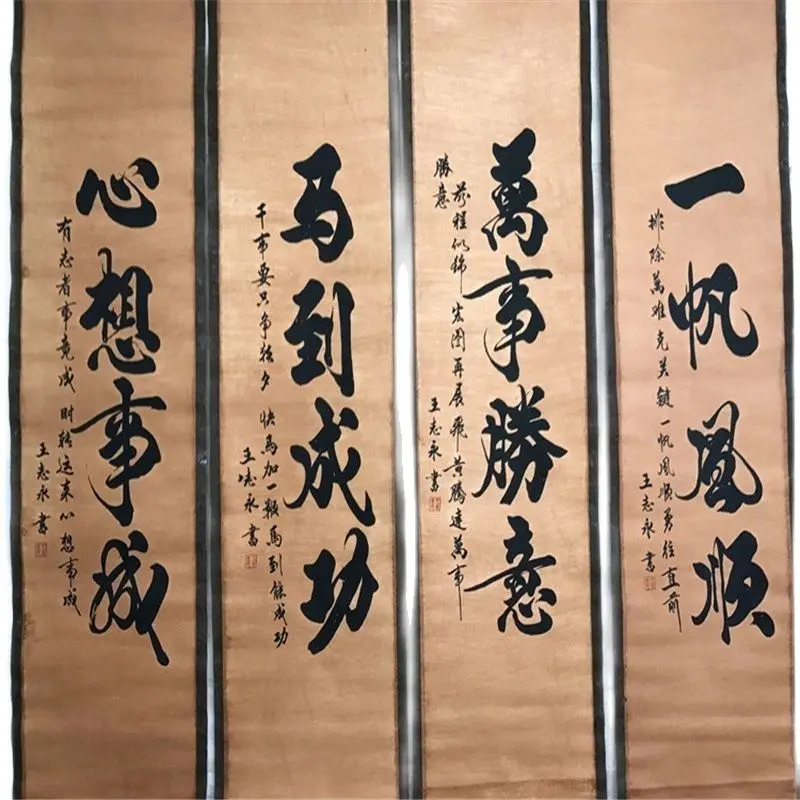 一帆風顺
排除萬难克关键一帆風顺勇往直前
王志永書
萬事勝意
前程似锦宏图再展飛黄腾達萬事
勝意
王志永書
马到成功
干事要只争朝夕快马加一鞭马到能成功
王志永書
心想事成
有志者事竟成时转运来心想事成
王志永書